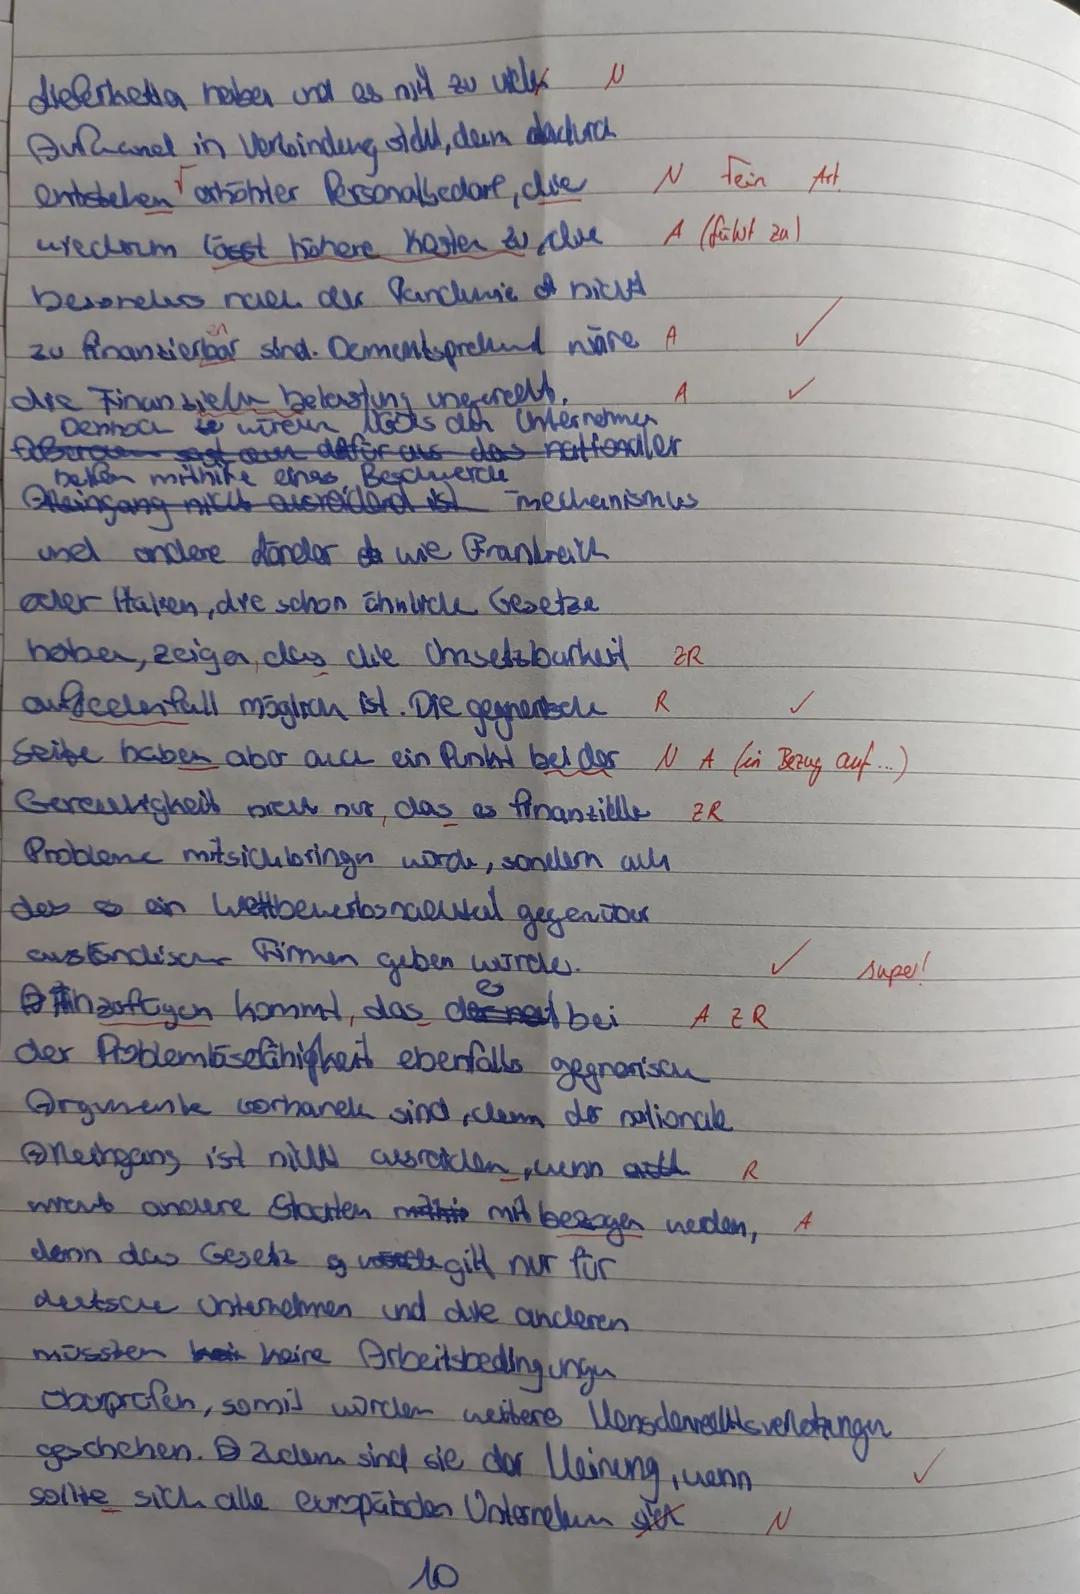 haben und es mit zu viel N
Aufwand in Verbindung steht, denn dadurch
entstehen erhöhter Personalbedarf, die N Art
wiederum lässt höhere Kosten zu die A (führt zu)
besonders nach der Pandemie nicht
zu finanzierbar sind. Dementsprechend wäre A ✓
die Finanzielle belastung ungerecht. A ✓
Dennoch würden NGOs den Unternehmen
dafür aus das nationaler
helfen mithilfe eines Beschwerde
Alleingang nicht ausreichend ist mechanismus
und andere Länder wie Frankreich
oder Italien, die schon ähnliche Gesetze
haben, zeigen, das die Umsetzbarkeit ZR
aufjedenfall möglich ist. Die gegnerische R ✓
Seite haben aber auch ein Punkt bei der N A (in Bezug auf...)
Gerechtigkeit nicht nur, das es finanzielle ZR
Probleme mitsichbringen würde, sondern auch
das es ein Wettbewerbsnachteil gegenüber
ausländischer Firmen geben würde. ✓ super!
kommt, das es bei A ZR
der Problemlösefähigkeit ebenfalls gegnerisch
Argumente vorhanden sind, denn der nationale
Alleingang ist nicht ausreichen, wenn R
nicht andere Staaten mit bezogen werden, A
denn das Gesetz gilt nur für
deutsche Unternehmen und die anderen
müssten keine Arbeitsbedingungen
überprüfen, somit würden weitere Menschenrechtsverletzungen
geschehen. Zudem sind sie der Meinung, wenn ✓
sollte sich alle europäischen Unternehmen N
10